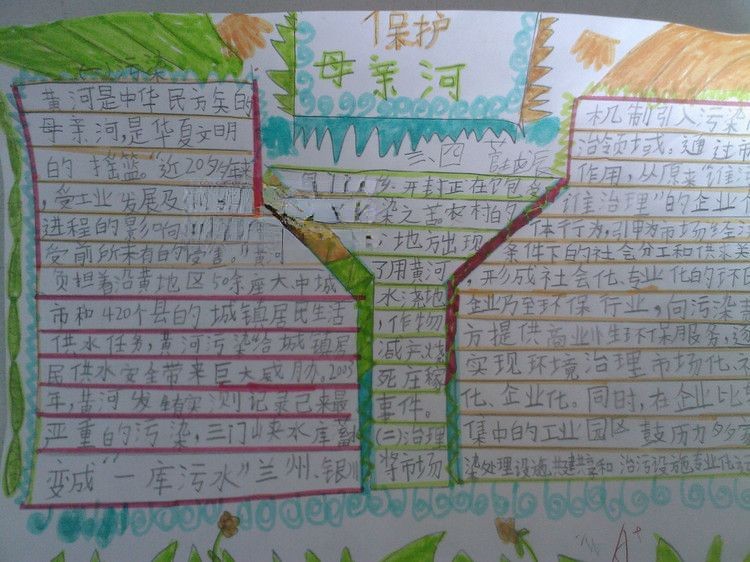 保护
母亲河
(一)污染
黄河是中华民族的
母亲河,是华夏文明
的"摇篮"。近20多年来
,受工业发展及
进程的影响
受前所未有的 。"黄河
负担着沿黄地区50余座大中城
市和420个县的城镇居民生活
供水任务,黄河污染给城镇居
民供水安全带来巨大威胁。2005
年,黄河发生有实测记录已来最
严重的污染,三门峡水库蓄
变成"一库污水"兰州、银川
三、四
、开封正在饱受
染之苦农村的
,地方出现
了用黄河
水浇地
,作物
减产烧
死庄稼
事件。
(二)治理
将市场
机制引入污染
治领域。通过市
作用,从原来"谁污
谁治理"的企业个
体行为,引申为市场经济
条件下的社会分工和供求关
,形成社会化、专业化的环
企业乃至环保行业,向污染
方提供商业性环保服务,逐
实现环境治理市场化、
化、企业化。同时,在企业比较
集中的工业园区鼓励多家
染处理设施共建共享和治污设施专业化运
A+